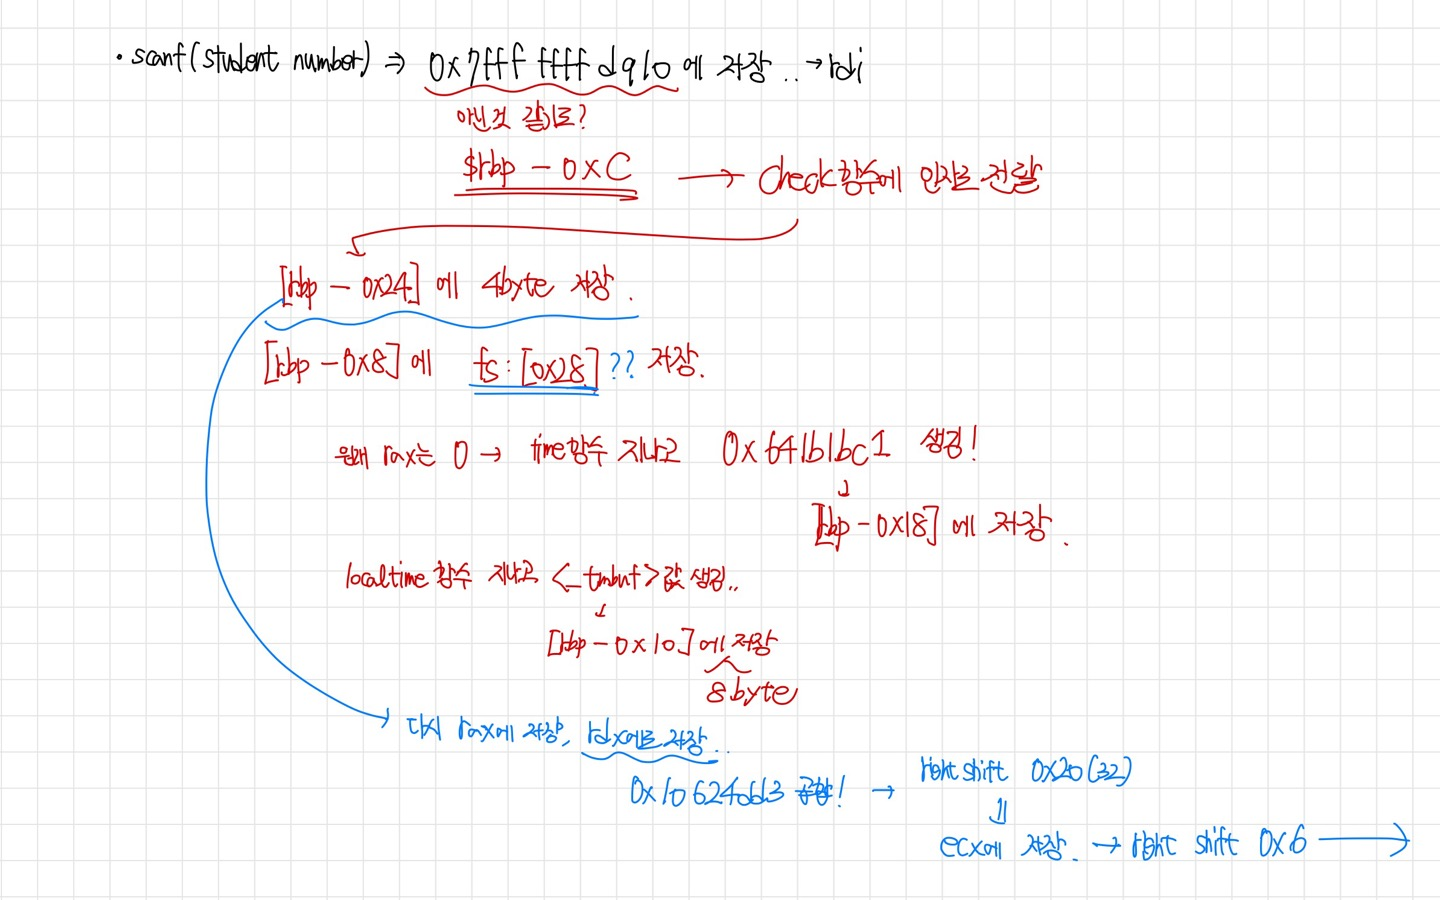 • scanf(student number) ⇒ 0x7fff ffff d910에 저장.. → rdi
아닌것 같기도?
$rbp - 0xC → check함수에 인자로 전달
[rbp - 0x24] 에 4byte 저장.
[rbp - 0x8] 에 fs:[0x28] ?? 저장.
원래 rax는 0 → time함수 지나고 0x641b1bc1 생김!
↓
[rbp - 0x18] 에 저장.
localtime 함수 지나고 <_tmbuf> 값 생김..
↓
[rbp - 0x10] 에 저장
8byte
다시 rax에 저장, rdx에도 저장..
0x10624dd3 곱함! → right shift 0x20(32)
⇓
ecx에 저장. → right shift 0x6 →